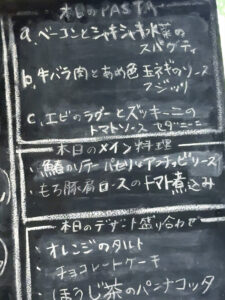 本日のPASTA
a. ベーコンとシャキシャキ水菜の
スパゲティ
b. 牛バラ肉とあめ色玉ネギのソース
フジッリ
c. エビのラグーとズッキーニの
トマトソース セダニーニ
本日のメイン料理
・鰆のソテー パセリとアンチョビソース
・もち豚肩ロースのトマト煮込み
本日のデザート盛り合わせ
・オレンジのタルト
・チョコレートケーキ
・ほうじ茶のパンナコッタ